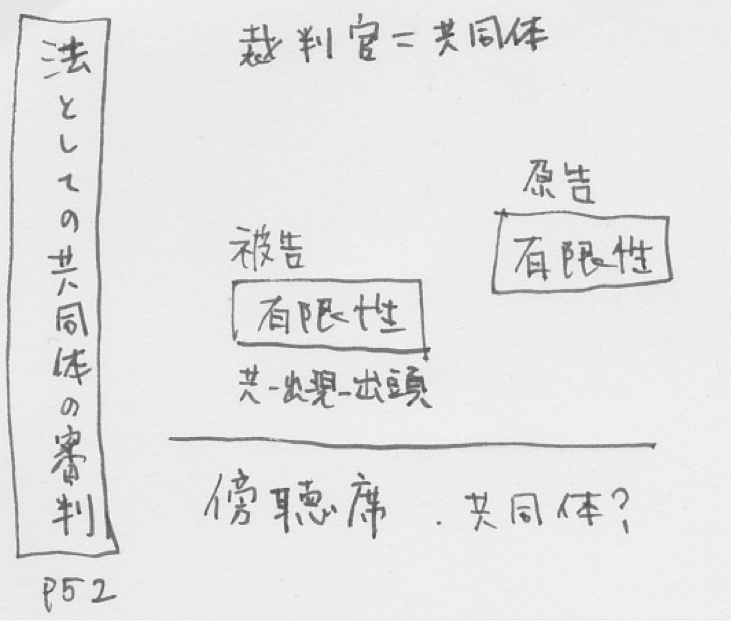 法としての共同体の審判
p52
裁判官＝共同体
原告
有限性
被告
有限性
共-出現-出頭
傍聴席．共同体?